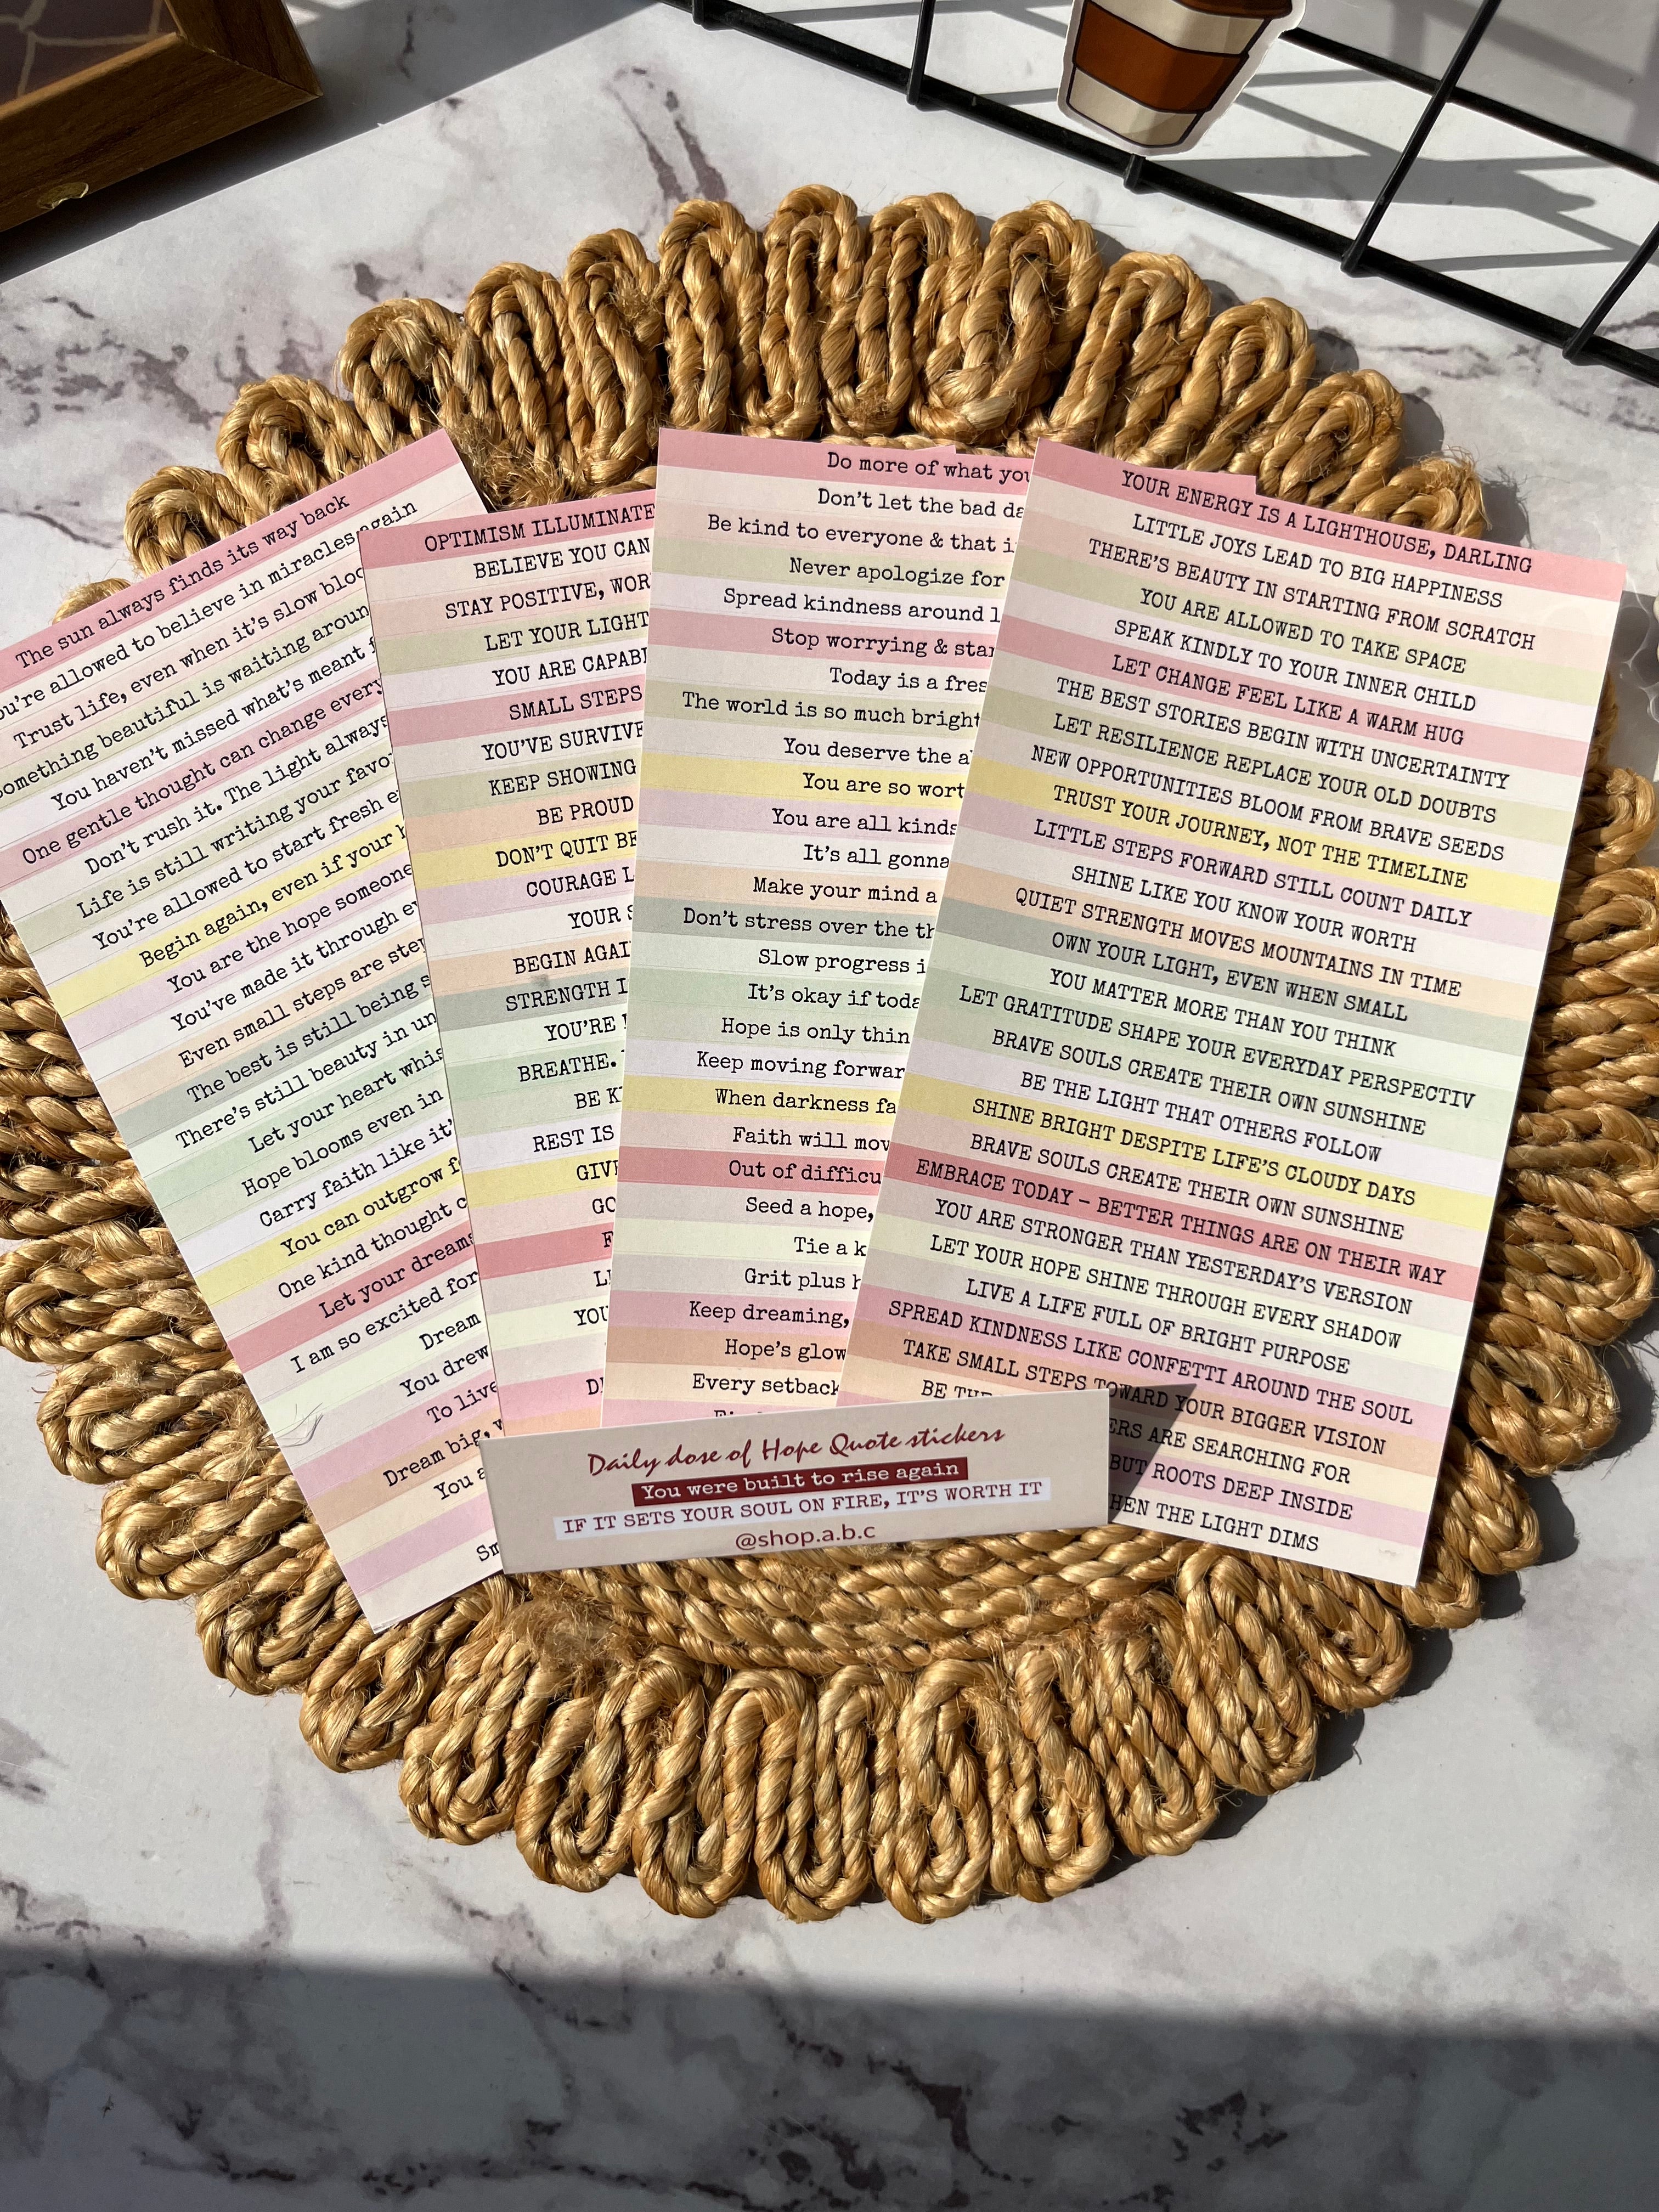 The sun always finds its way back
You're allowed to believe in miracles again
Trust life, even when it's slow
Something beautiful is waiting
You haven't missed what's meant
One gentle thought can change
Don't rush it. The light always
Life is still writing your
You're allowed to start fresh
Begin again, even if your
You are the hope someone
You've made it through
Even small steps are
The best is still being
There's still beauty in
Let your heart
Hope blooms even in
Carry faith like
You can outgrow
One kind thought
Let your dreams
I am so excited for
Dream
You drew
To live
Dream big,
You
OPTIMISM
BELIEVE YOU CAN
STAY POSITIVE,
LET YOUR LIGHT
YOU ARE
SMALL STEPS
YOU'VE
KEEP SHOWING
BE PROUD
DON'T QUIT
COURAGE
YOUR
BEGIN
STRENGTH
YOU'RE
BREATHE.
BE
REST IS
Do more of what you
Don't let the bad
Be kind to everyone & that
Never apologize for
Spread kindness around
Stop worrying &
Today is a
The world is so much
You deserve the
You are so
You are all kinds
It's all gonna
Make your mind a
Don't stress over the
Slow progress
It's okay if
Hope is only
Keep moving
When darkness
Faith will
Out of
Seed a hope,
Tie a
Grit plus
Keep dreaming,
Hope's
Every setback
YOUR ENERGY IS A LIGHTHOUSE, DARLING
LITTLE JOYS LEAD TO BIG HAPPINESS
THERE'S BEAUTY IN STARTING FROM SCRATCH
YOU ARE ALLOWED TO TAKE SPACE
SPEAK KINDLY TO YOUR INNER CHILD
LET CHANGE FEEL LIKE A WARM HUG
THE BEST STORIES BEGIN WITH UNCERTAINTY
LET RESILIENCE REPLACE YOUR OLD DOUBTS
NEW OPPORTUNITIES BLOOM FROM BRAVE SEEDS
TRUST YOUR JOURNEY, NOT THE TIMELINE
LITTLE STEPS FORWARD STILL COUNT DAILY
SHINE LIKE YOU KNOW YOUR WORTH
QUIET STRENGTH MOVES MOUNTAINS IN TIME
OWN YOUR LIGHT, EVEN WHEN SMALL
YOU MATTER MORE THAN YOU THINK
LET GRATITUDE SHAPE YOUR EVERYDAY PERSPECTIV
BRAVE SOULS CREATE THEIR OWN SUNSHINE
BE THE LIGHT THAT OTHERS FOLLOW
SHINE BRIGHT DESPITE LIFE'S CLOUDY DAYS
BRAVE SOULS CREATE THEIR OWN SUNSHINE
EMBRACE TODAY – BETTER THINGS ARE ON THEIR WAY
YOU ARE STRONGER THAN YESTERDAY'S VERSION
LET YOUR HOPE SHINE THROUGH EVERY SHADOW
LIVE A LIFE FULL OF BRIGHT PURPOSE
SPREAD KINDNESS LIKE CONFETTI AROUND THE SOUL
TAKE SMALL STEPS TOWARD YOUR BIGGER VISION
BE ARE SEARCHING FOR
BUT ROOTS DEEP INSIDE
THE LIGHT DIMS
Daily dose of Hope Quote stickers
You were built to rise again
IF IT SETS YOUR SOUL ON FIRE, IT'S WORTH IT
@shop.a.b.c